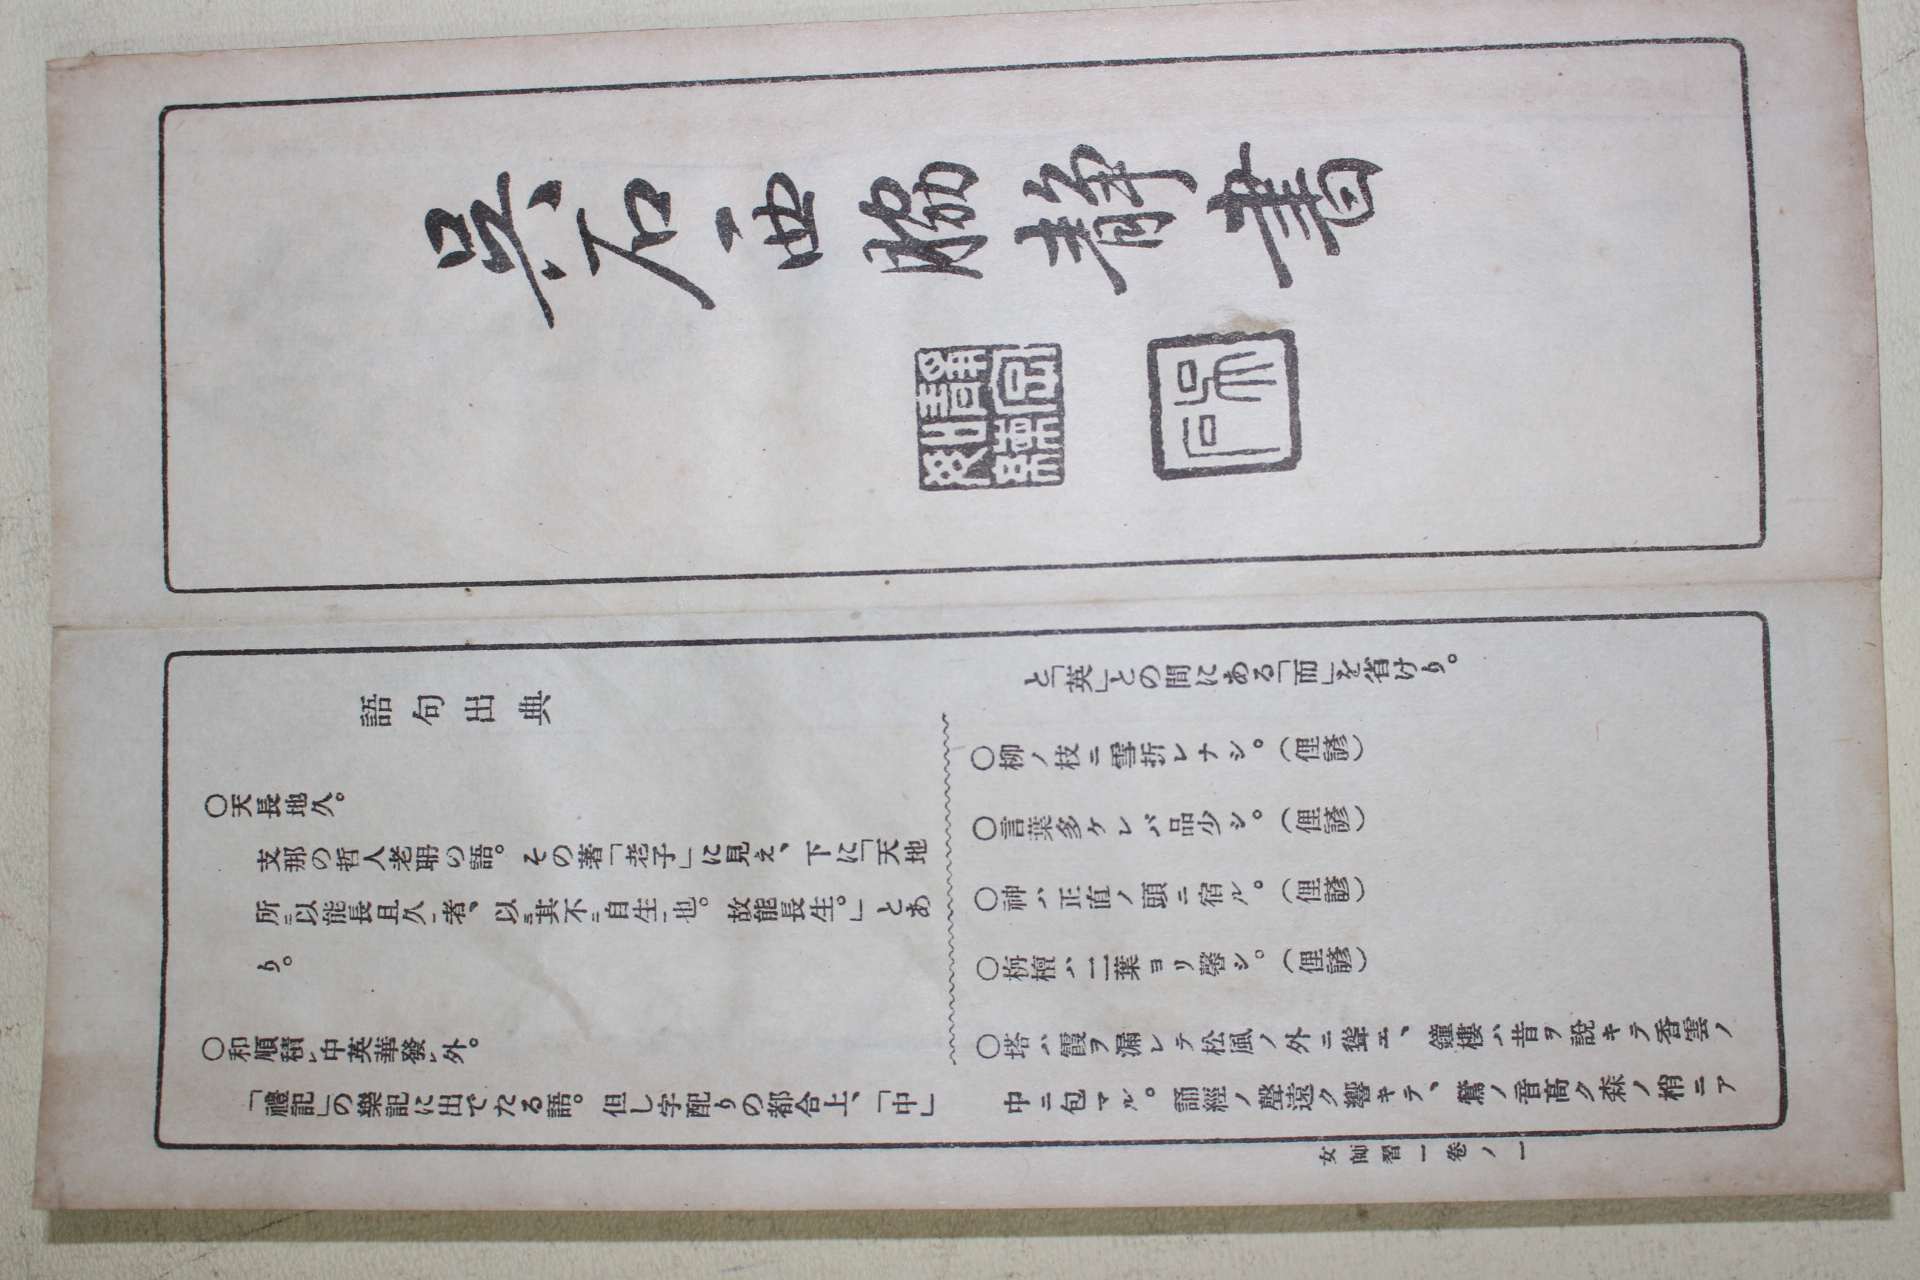 吳石西脇靜書
吳石
語句出典
○天長地久。
支那の哲人老聃の語。その著「老子」に見え、下に「天地
所二以能長且久一者、以三其不二自生一也。故能長生。」とあ
り。
○和順積レ中英華發レ外。
「禮記」の樂記に出でたる語。但し字配りの都合上、「中」
と「英」との間にある「而」を省けり。
○柳ノ枝ニ雪折レナシ。(俚諺)
○言葉多ケレバ品少シ。(俚諺)
○神ハ正直ノ頭ニ宿ル。(俚諺)
○栴檀ハ二葉ヨリ馨シ。(俚諺)
○塔ハ霞ヲ漏レテ松風ノ外ニ聳エ、鐘樓ハ昔ヲ説キテ香雲ノ
中ニ包マル。誦經ノ聲遠ク響キテ、鶯ノ音高ク森ノ梢ニア
女師習一卷ノ一